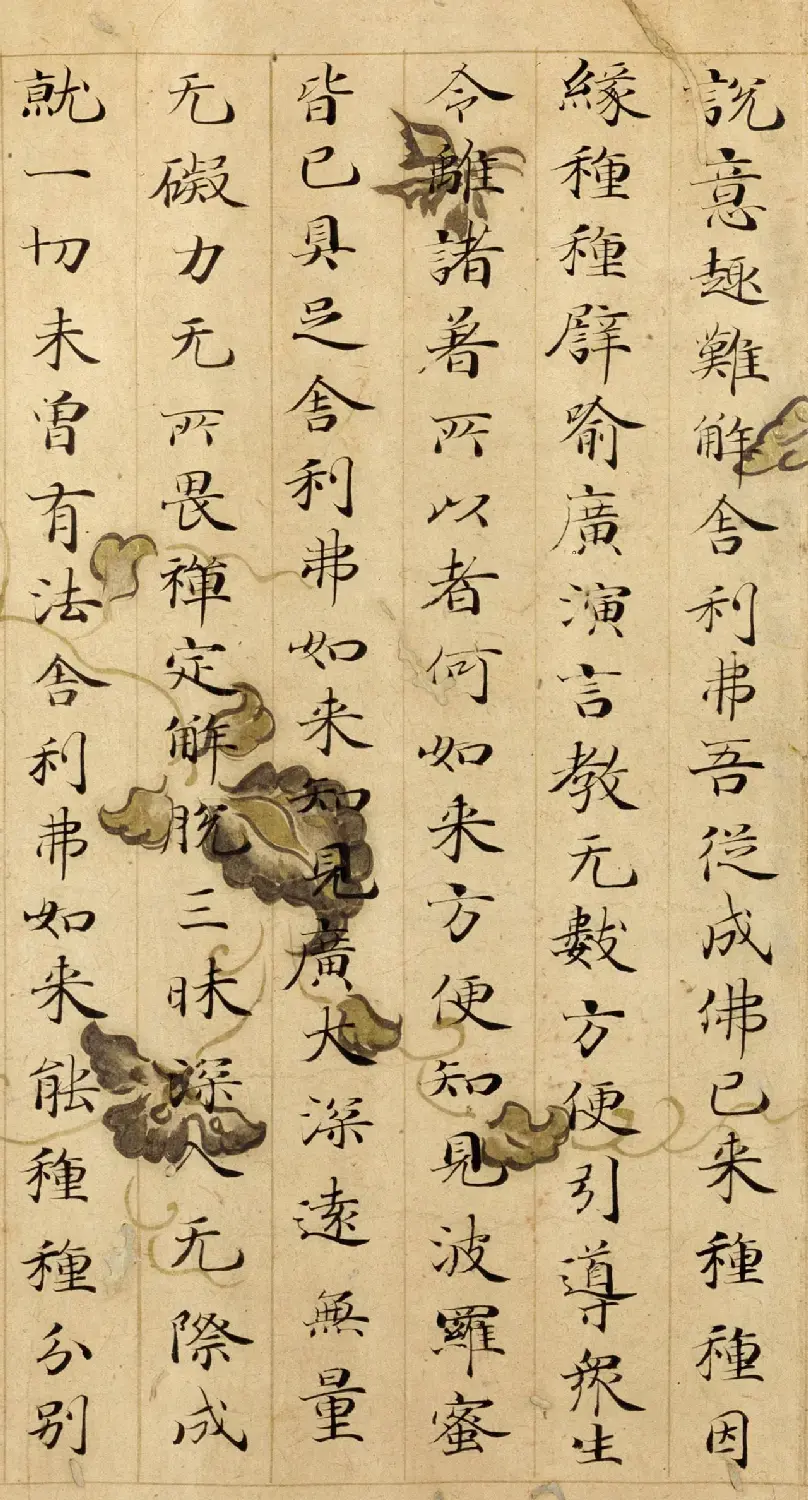 說意趣難解舎利弗吾從成佛已来種種因
緣種種譬喻廣演言教无數方便引導衆生
令離諸著所以者何如来方便知見波羅蜜
皆已具足舎利弗如来知見廣大深遠無量
无礙力无所畏禪定解脫三昧深入无際成
就一切未曽有法舎利弗如来能種種分別